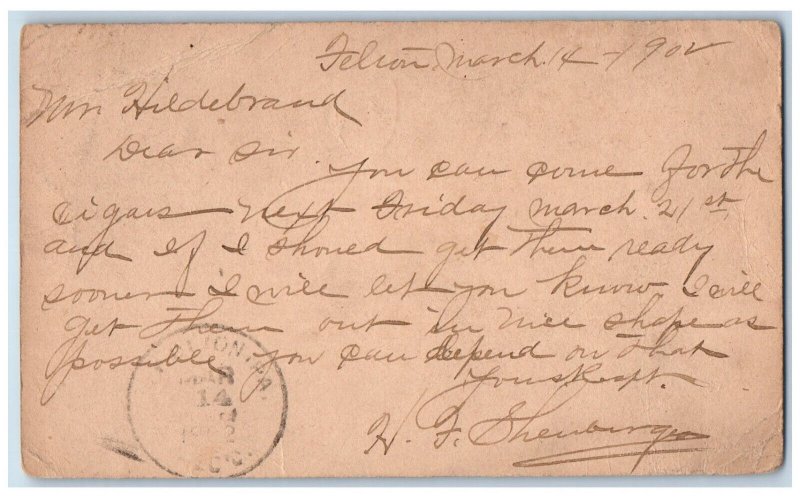 Felton, March. 14 - 1902
Mr Hildebrand
Dear Sir.
you can come for the
cigars next Friday march. 21st,
and if I should get them ready
sooner I will let you know. I will
get them out in nice shape as
possible, you can depend on that
Yours Respt.
H. F. Shenberger
MAR
14